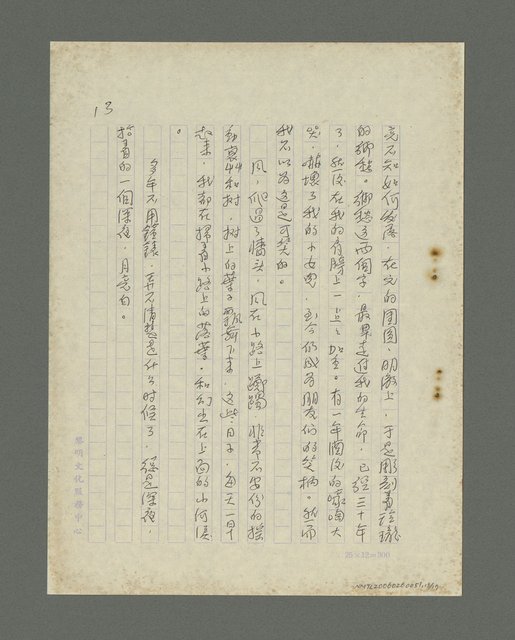 13
竟不知如何發落,在它的團圓、明澈上,于是雕刻着玲瓏
的鄉愁。鄉愁這兩個字,最早走過我的生命,已經三十年
了,然後在我的肩膀上一上一上加重。有一年國後的嚎啕大
哭,嚇壞了我的小女兒,至今仍成為朋友們的笑柄。然而
我不以為這是可笑的。
風,爬過了牆頭,風在小路上躑躅,非常不安份的搖
動窗和樹,樹上的葉子飄舞下來,這些日子,每天一早
起來,我都在掃着小路上的落葉。和幻生在上面的小河溪
。
多年不用鐘錶,弄不清楚是什么时候了,總是深夜,
抬着的一個深夜,月亮白。
黎明文化服務中心
25×12=300